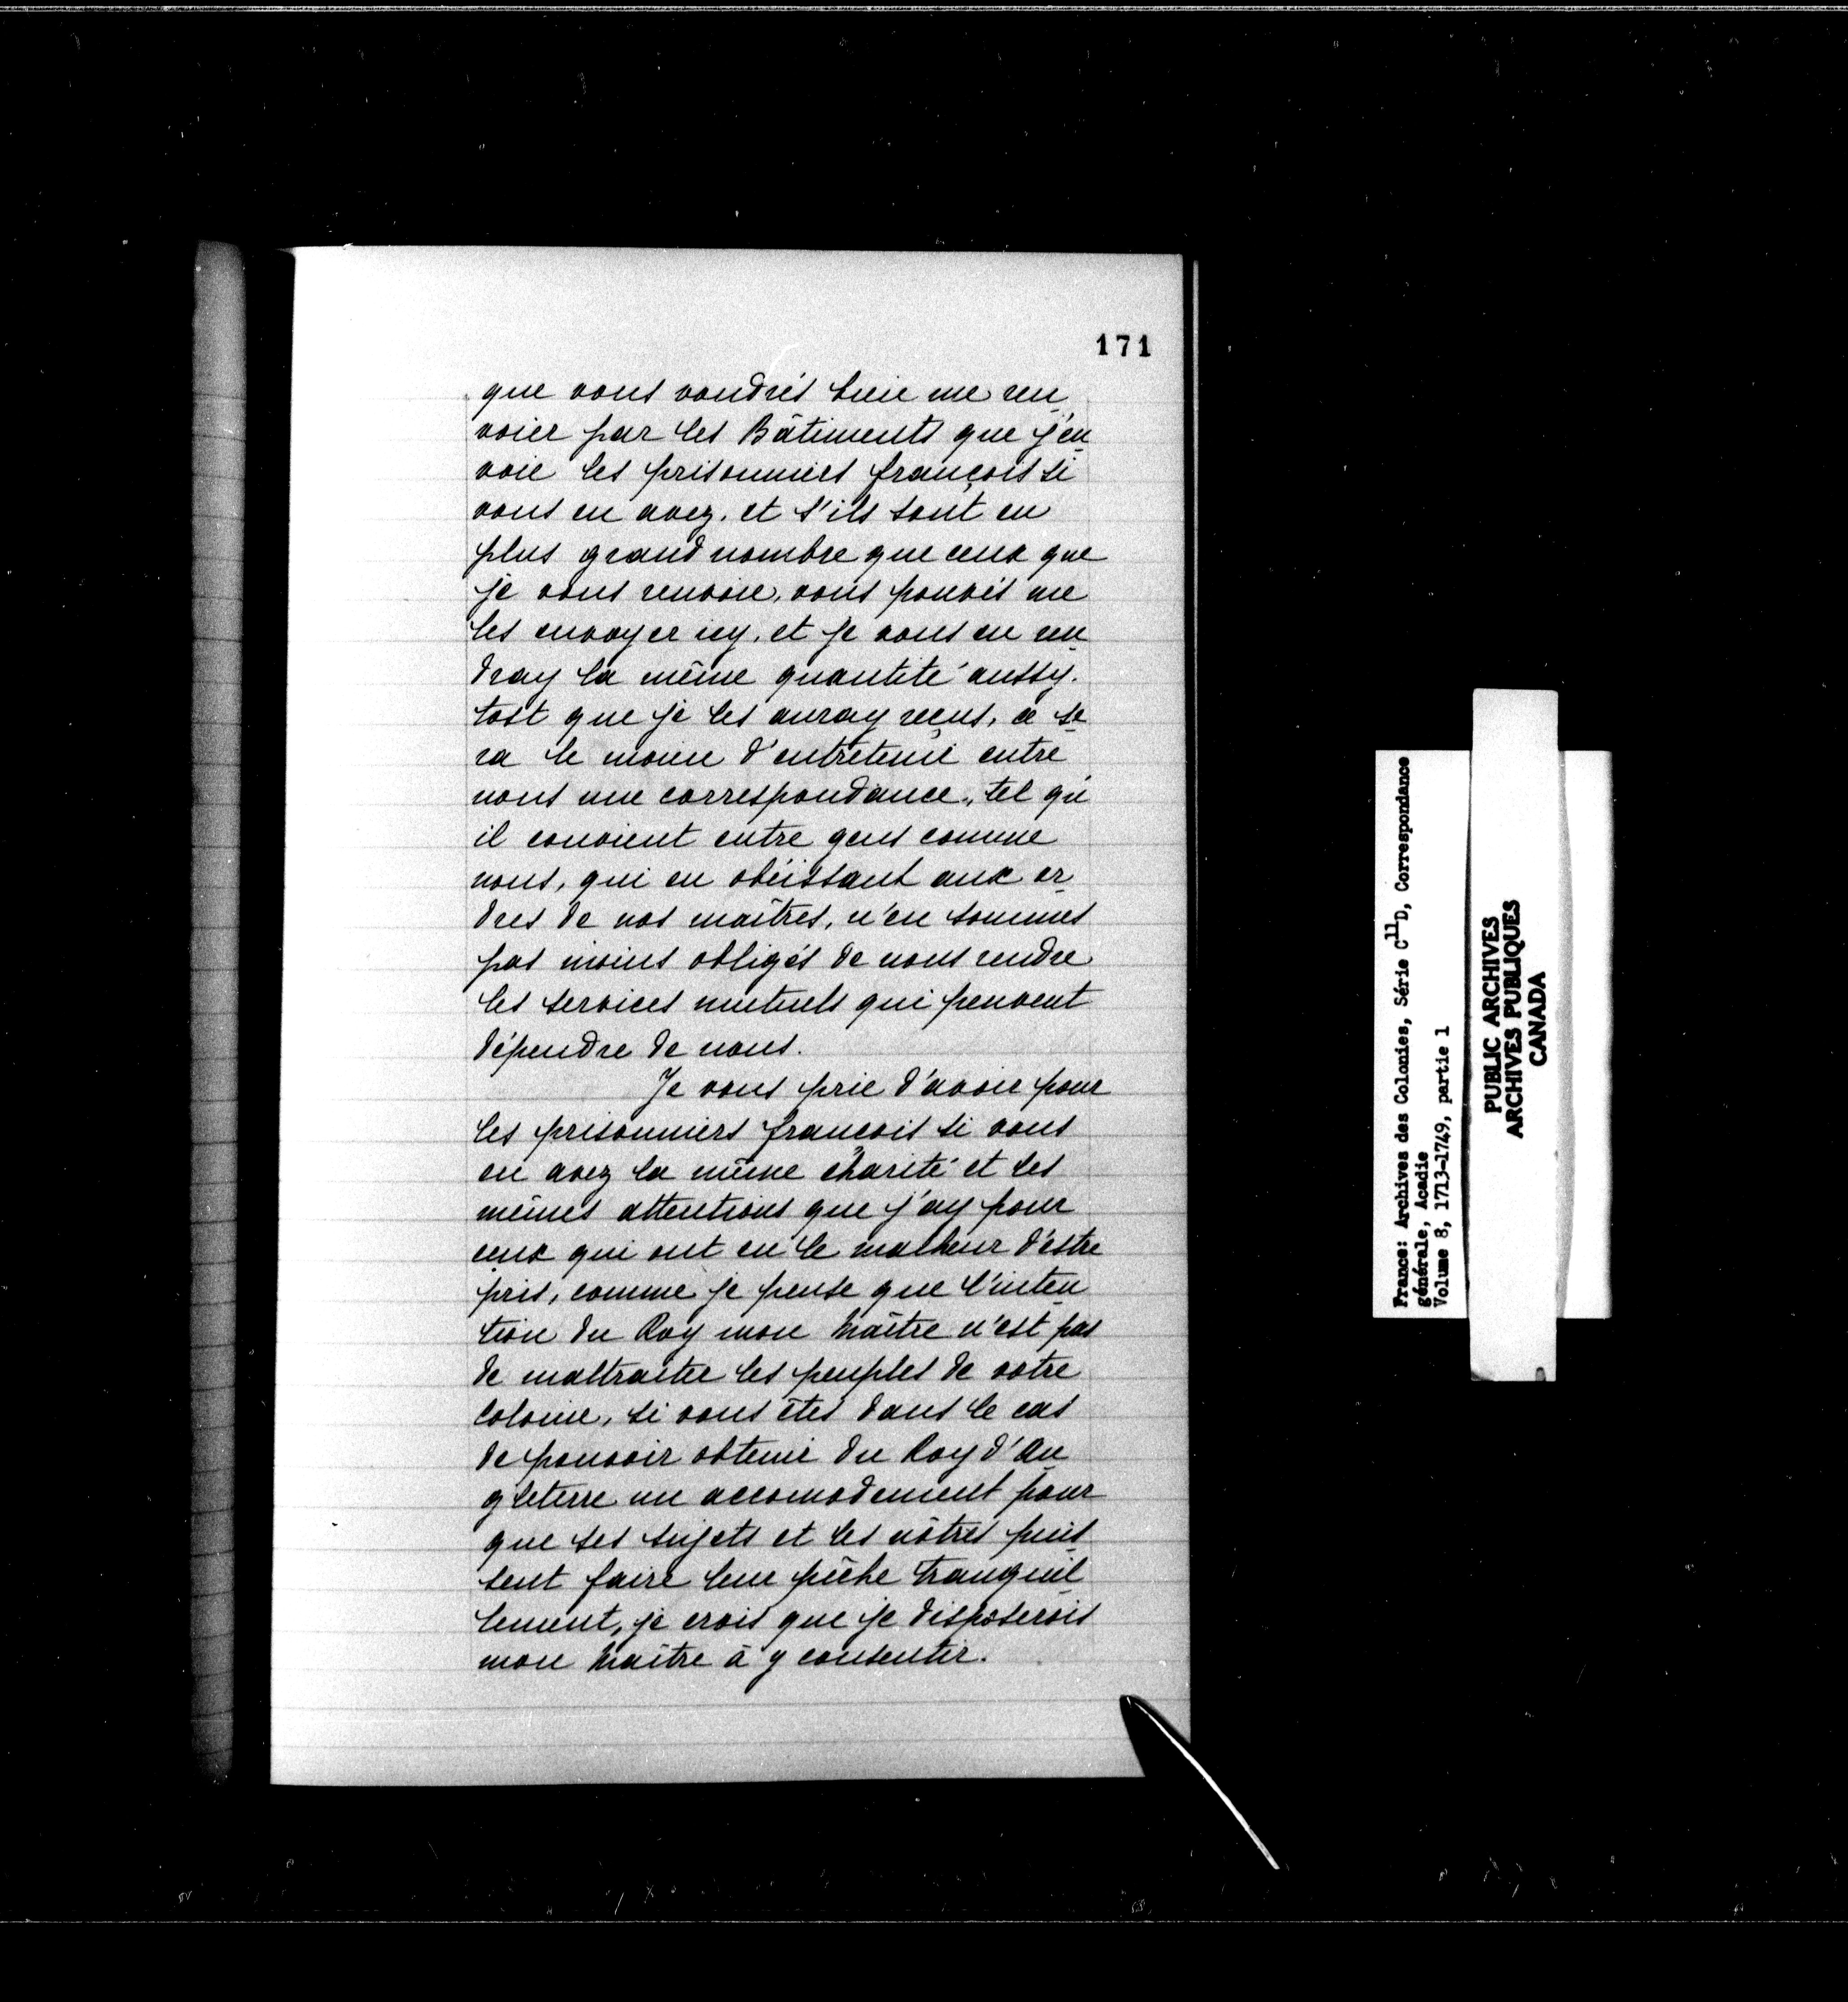 171
que vous voudrés bien me ren
voier par les Bâtiments que j'en
voie les prisonniers françois si
vous en avez. et s'ils sont en
plus grand nombre que ceux que
je vous renvoie, vous pouvés me
les envoyer icy, et je vous en ren
dray la même quantité aussy.
tost que je les auray reçus, ce se
ra le moien d'entretenir entre
nous une correspondance, tel qu'
il convient entre gens comme
nous, qui en obéissant aux or
dres de nos maîtres, n'en sommes
pas moins obligés de nous rendre
les services mutuels qui peuvent
dépendre de nous.
Je vous prie d'avoir pour
les prisonniers françois si vous
en avez la même charité et les
mêmes attentions que j'ay pour
ceux qui ont eu le malheur d'estre
pris, comme je pense que l'inten
tion du Roy mon maître n'est pas
de maltraiter les peuples de votre
colonie, si vous êtes dans le cas
de pouvoir obtenir du Roy d'An
gleterre un accomodement pour
que ses sujets et les nôtres puis
sent faire leur pêche tranquil
lement, je crois que je disposerois
mon maître à y consentir.
France: Archives des Colonies, Série C11D, Correspondance
générale, Acadie
Volume 8, 1713-1749, partie 1
PUBLIC ARCHIVES
ARCHIVES PUBLIQUES
CANADA